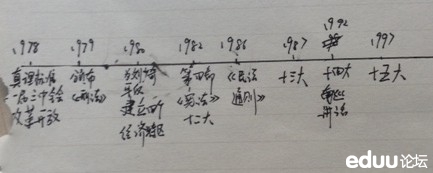 1978 1979 1980 1982 1986 1987 1992 1997
真理标准
十一届三中全会
改革开放
颁布
《刑法》
为刘少奇
平反
建立四个
经济特区
第四部
《宪法》
十二大
《民法
通则》
十三大
十四大
南巡
讲话
十五大
eduu论坛